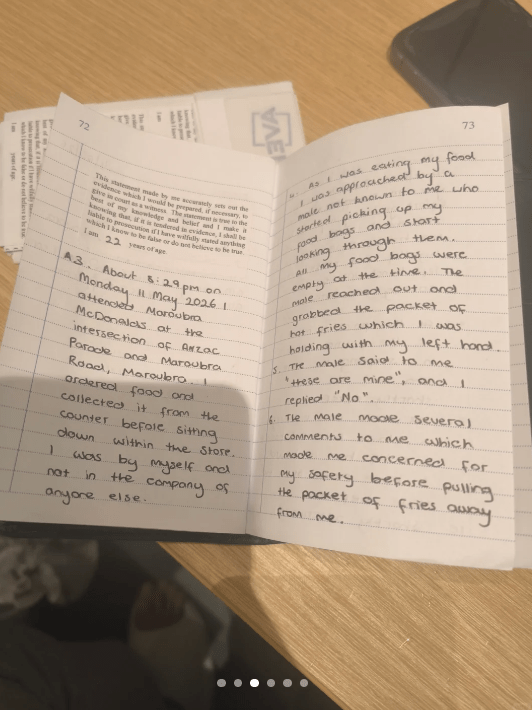 72
This statement made by me accurately sets out the
evidence which I would be prepared, if necessary, to
give in court as a witness. The statement is true to the
best of my knowledge and belief and I make it
knowing that, if it is tendered in evidence, I shall be
liable to prosecution if I have wilfully stated anything
which I know to be false or do not believe to be true.
I am 22 years of age.
A3. About 8:29pm on
Monday 11 May 2026 I
attended Maroubra
McDonalds at the
intersection of Anzac
Parade and Maroubra
Road, Maroubra. I
ordered food and
collected it from the
counter before sitting
down within the store.
I was by myself and
not in the company of
anyone else.
73
As I was eating my food
I was approached by a
male not known to me who
started picking up my
food bags and start
looking through them.
All my food bags were
empty at the time. The
male reached out and
grabbed the packet of
hot fries which I was
holding with my left hand.
5. The male said to me
"these are mine", and I
replied "No".
6. The male made several
comments to me which
made me concerned for
my safety before pulling
the packet of fries away
from me.